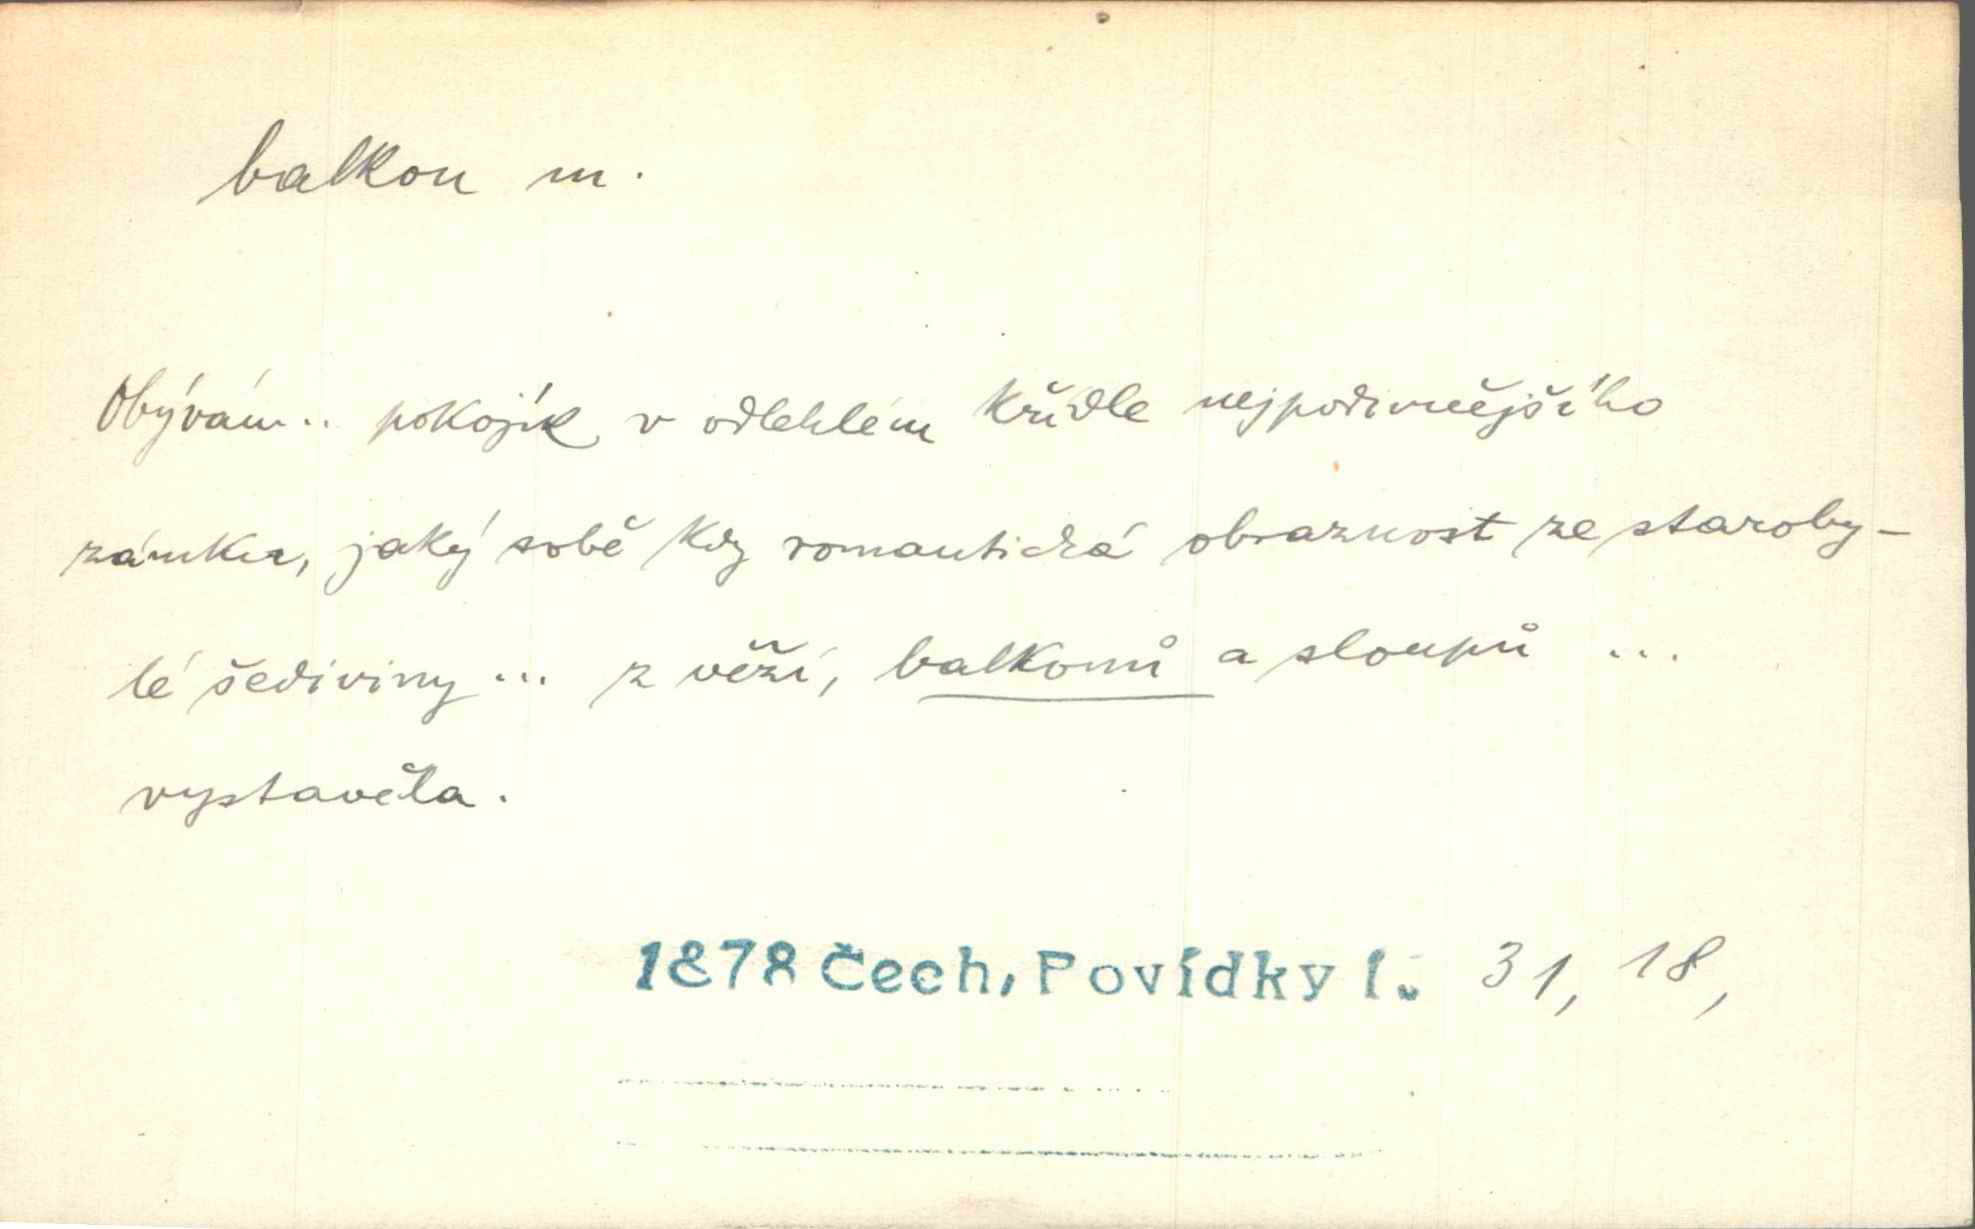 balkon m.
Obývám.. pokojík v odlehlém křídle nejpodivnějšího
zámku, jaký sobě kdy romantická obraznost ze staroby-
lé šediviny ... z věží, balkonů a sloupů ...
vystavěla.
1878 Čech, Povídky I. 31, 18,